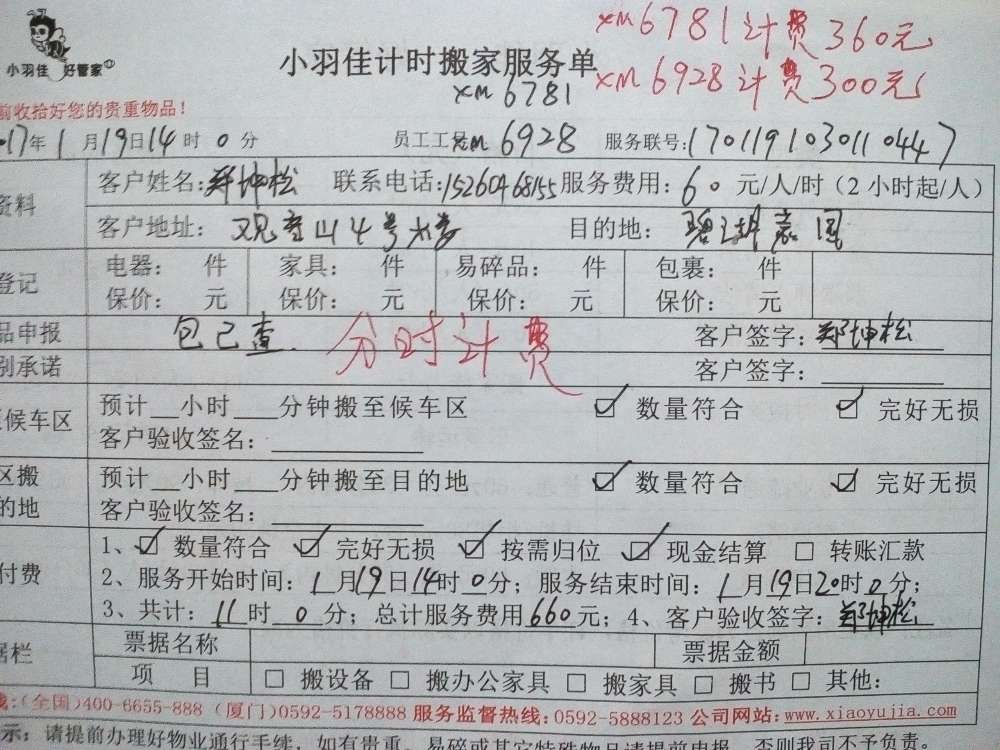 XM6781计费360元
小羽佳 好管家
小羽佳计时搬家服务单
XM6928计费300元
XM6781
前收拾好您的贵重物品!
17年1月19日14时0分 员工工号:XM6928 服务联号:1701191030110447
资料 客户姓名:郑坤松 联系电话:15260468155 服务费用:60元/人/时(2小时起/人)
客户地址: 观音山4号 目的地: 碧湖嘉园
登记 电器: 件 家具: 件 易碎品: 件 包裹: 件
保价: 元 保价: 元 保价: 元 保价: 元
品申报 包已查 分时计费 客户签字:郑坤松
别承诺 客户签字:
候车区 预计__小时___分钟搬至候车区 ☑ 数量符合 ☑ 完好无损
客户验收签名:
区搬 预计__小时___分钟搬至目的地 ☑ 数量符合 ☑ 完好无损
的地 客户验收签名:
付费 1、☑ 数量符合 ☑ 完好无损 ☑ 按需归位 ☑ 现金结算 □ 转账汇款
2、服务开始时间:1月19日14时0分;服务结束时间:1月19日20时0分;
3、共计:11时0分;总计服务费用660元;4、客户验收签字:郑坤松
据栏 票据名称 票据金额
项 目 □ 搬设备 □ 搬办公家具 □ 搬家具 □ 搬书 □ 其他:
线:(全国)400-6655-888 (厦门)0592-5178888 服务监督热线:0592-5888123 公司网站:www.xiaoyujia.com
示:请提前办理好物业通行手续,如有贵重、易碎或其它特殊物品请提前申报,否则我司不予负责。